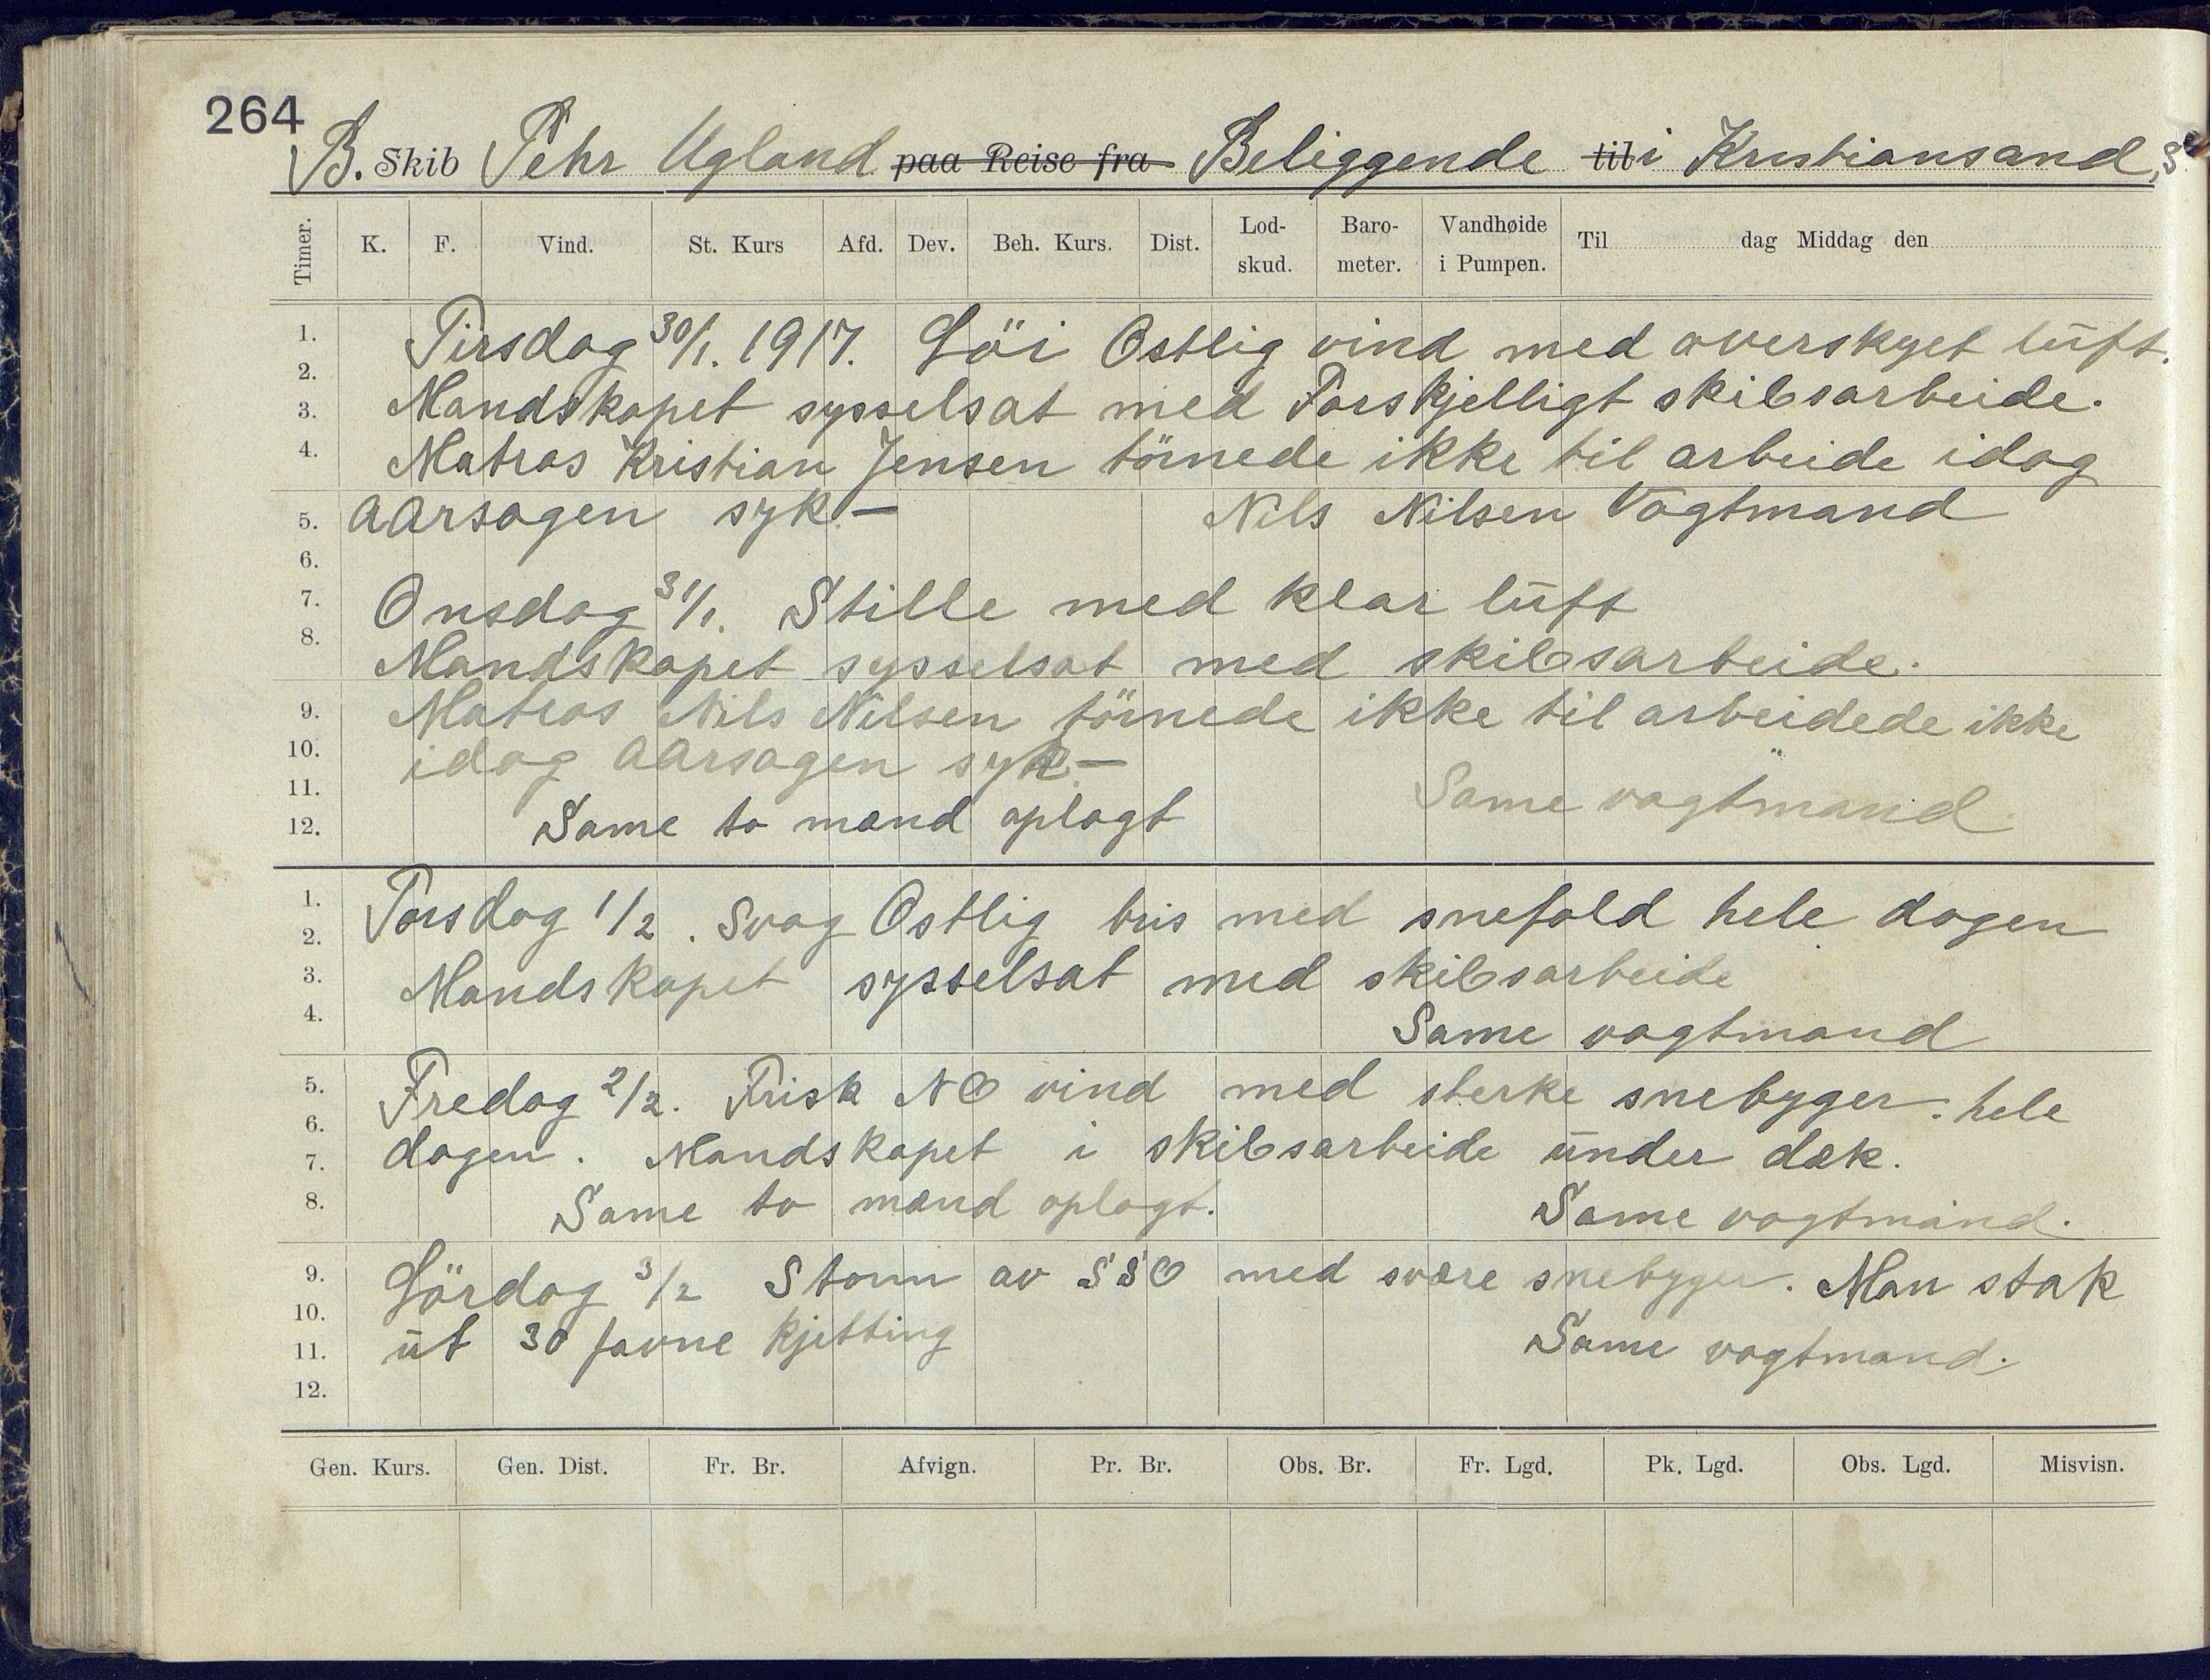 264
B. Skib Pehr Ugland paa Reise fra Beliggende til i Kristiansand, S
Timer. K. F. Vind. St. Kurs Afd. Dev. Beh. Kurs. Dist. Lod-skud. Baro-meter. Vandhøide i Pumpen. Til dag Middag den
1. Tirsdag 30/1. 1917. Löi Ostlig vind med overskyet luft.
2.
3. Mandskapet sysselsat med Forskjelligt skibsarbeide.
4. Matros Kristian Jensen törnede ikke til arbeide idag
5. aarsagen syk. — Nils Nilsen Vagtmand
6.
7. Onsdag 31/1. Stille med klar luft
8. Mandskapet sysselsat med skibsarbeide.
9. Matros Nils Nilsen törnede ikke til arbeidede ikke
10. idag aarsagen syk —
11. Same vagtmand
12. Same to mænd oplagt
1. Torsdag 1/2. Svag Ostlig bris med snefald hele dagen
2.
3. Mandskapet sysselsat med skibsarbeide
4. Same vagtmand
5. Fredag 2/2. Frisk NO vind med sterke snebyger. hele
6.
7. dagen. Mandskapet i skibsarbeide under dæk.
8. Same to mænd oplagt. Same vagtmand.
9. Lördag 3/2 Storm av SSO med svære snebyger. Man stak
10.
11. ut 30 favne kjetting Same vagtmand.
12.
Gen. Kurs. Gen. Dist. Fr. Br. Afvign. Pr. Br. Obs. Br. Fr. Lgd. Pk. Lgd. Obs. Lgd. Misvisn.